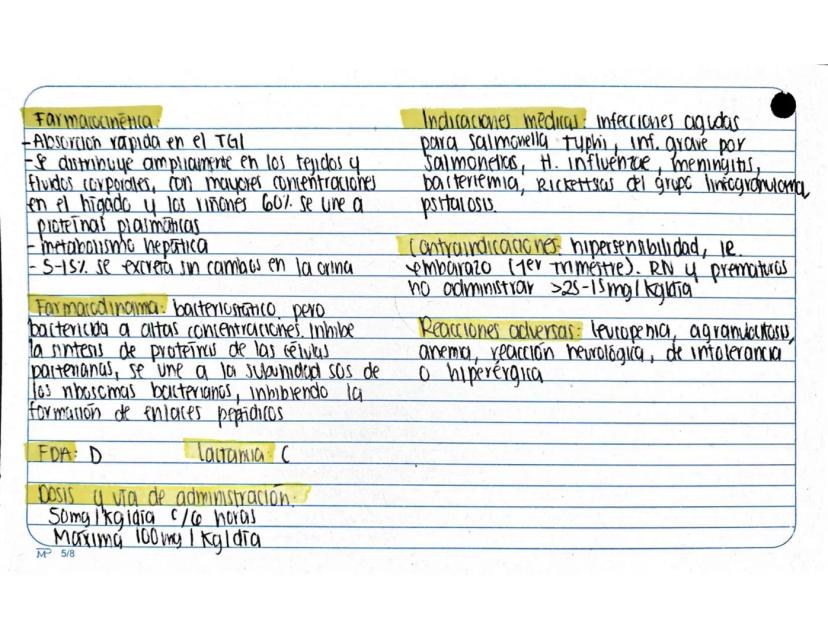 Farmacocinética:
- Absorción rápida en el TGI
- Se distribuye ampliamente en los tejidos y
fluidos corporales, con mayores concentraciones
en el hígado y los riñones 60% se une a
proteínas plasmáticas
- metabolismo hepática
- 5-15% se excreta sin cambios en la orina
Farmacodinamia: bacteriostático, pero
bactericida a altas concentraciones. Inhibe
la síntesis de proteínas de las células
bacterianas, se une a la subunidad 50s de
los ribosomas bacterianos, inhibiendo la
formación de enlaces peptídicos
FDA: D Lactancia: C
Dosis y vía de administración:
50mg/kg/día c/6 horas
Máxima 100mg/kg/día
MP 5/8
Indicaciones médicas: infecciones agudas
para salmonella typhi, inf. grave por
salmonellas, H. influenzae, meningitis,
bacteriemia, Rickettsias del grupo linfogranuloma
psitacosis.
Contraindicaciones: hipersensibilidad, ie.
embarazo (1er trimestre). RN y prematuros
no administrar >25-15mg/kg/día
Reacciones adversas: leucopenia, agranulocitosis,
anemia, reacción neurológica, de intolerancia
o hiperérgica